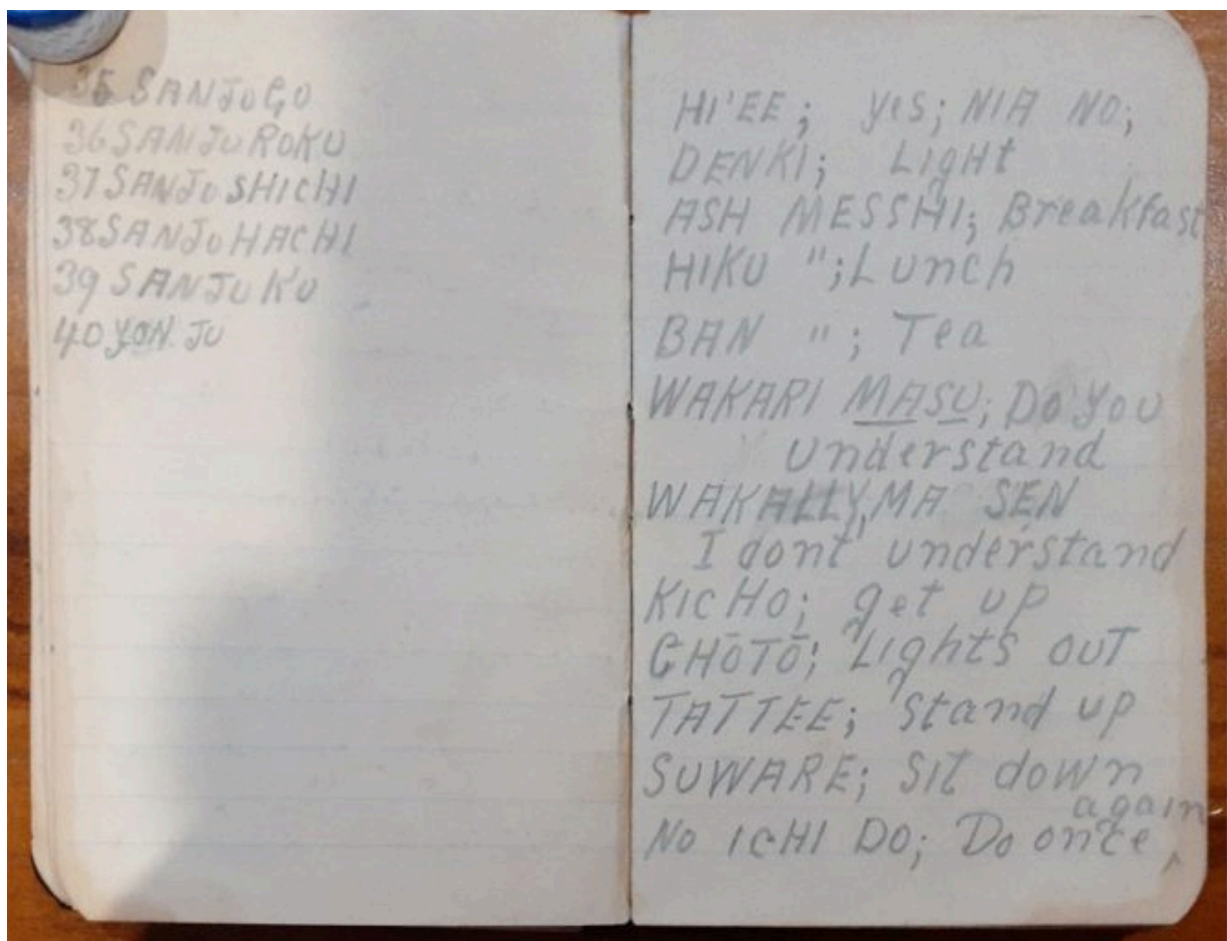 35 SANJUGO
36 SANJUROKU
37 SANJUSHICHI
38 SANJUHACHI
39 SANJUKU
40 YON. JU
HI'EE; yes; NIA NO;
DENKI; Light
ASH MESSHI; Breakfast
HIKU "; Lunch
BAN "; Tea
WAKARI MASU; Do you
understand
WAKALLY, MA SEN
I dont understand
KICHO; get up
CHŌTŌ; Lights OUT
TATTEE; Stand up
SUWARE; Sit down
again
NO ICHI DO; Do once ^